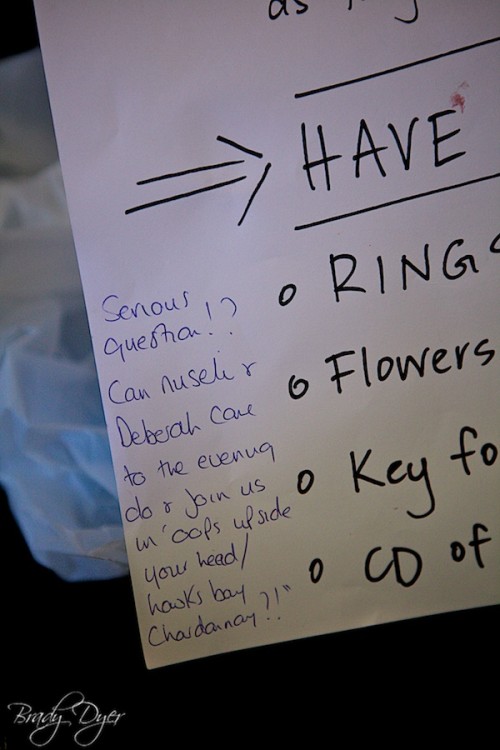 HAVE
RINGS
Flowers
Key fo
CD of
Serious
question!?
Can nuseli &
Deborah come
to the evening
do & join us
in 'oops upside
your head/
hawks bay
Chardannay?!"
Brady Dyer